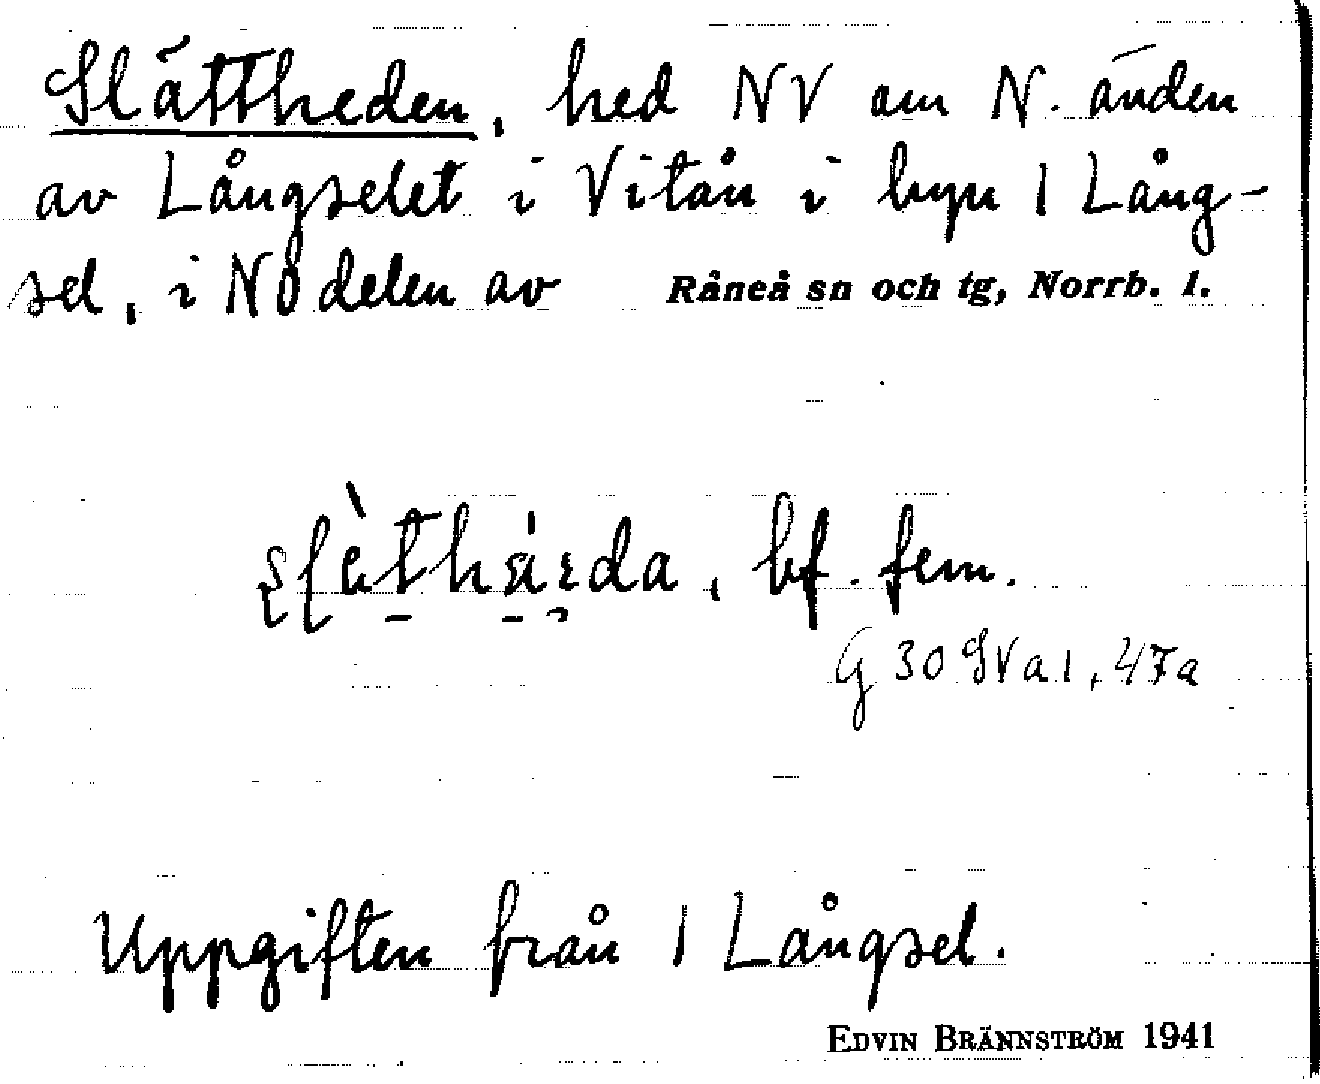 Slättheden, hed NV om N. änden
av Långselet i Vitån i byn 1 Lång-
sel, i NÖ delen av Råneå sn och tg, Norrb. l.
bf. fem.
G 30 SV a 1, 47a
Uppgiften från 1 Långsel.
EDVIN BRÄNNSTRÖM 1941